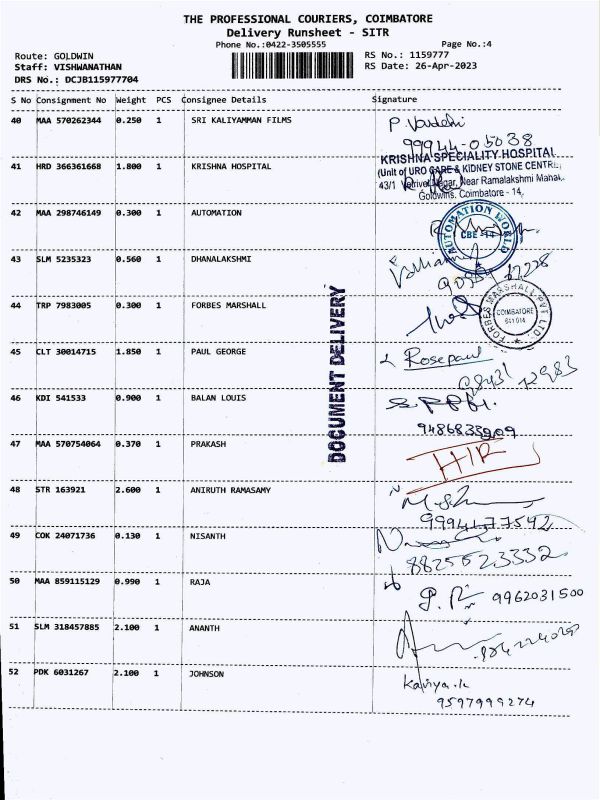 THE PROFESSIONAL COURIERS, COIMBATORE
Delivery Runsheet - SITR
Phone No.:0422-3505555 Page No.:4
Route: GOLDWIN RS No.: 1159777
Staff: VISHWANATHAN RS Date: 26-Apr-2023
DRS No.: DCJB115977704
S No Consignment No Weight PCS Consignee Details Signature
40 MAA 570262344 0.250 1 SRI KALIYAMMAN FILMS
99944-05038
KRISHNA SPECIALITY HOSPITAL
41 HRD 366361668 1.800 1 KRISHNA HOSPITAL
(Unit of URO CARE & KIDNEY STONE CENTRE,
43/1 Nagar, Near Ramalakshmi Mahal,
Goldwins, Coimbatore - 14.
42 MAA 298746149 0.300 1 AUTOMATION
AUTOMATION WORLD
CBE - 14
43 SLM 5235323 0.560 1 DHANALAKSHMI
44 TRP 7983005 0.300 1 FORBES MARSHALL
FORBES MARSHALL PVT LTD
COIMBATORE
641 014
DOCUMENT DELIVERY
45 CLT 30014715 1.850 1 PAUL GEORGE
Rosepaul
46 KDI 541533 0.900 1 BALAN LOUIS
47 MAA 570754064 0.370 1 PRAKASH
48 STR 163921 2.600 1 ANIRUTH RAMASAMY
9994177542
49 COK 24071736 0.130 1 NISANTH
8825523332
50 MAA 859115129 0.990 1 RAJA
9962031500
51 SLM 318457885 2.100 1 ANANTH
52 PDK 6031267 2.100 1 JOHNSON
Kaviya.k
9597999274